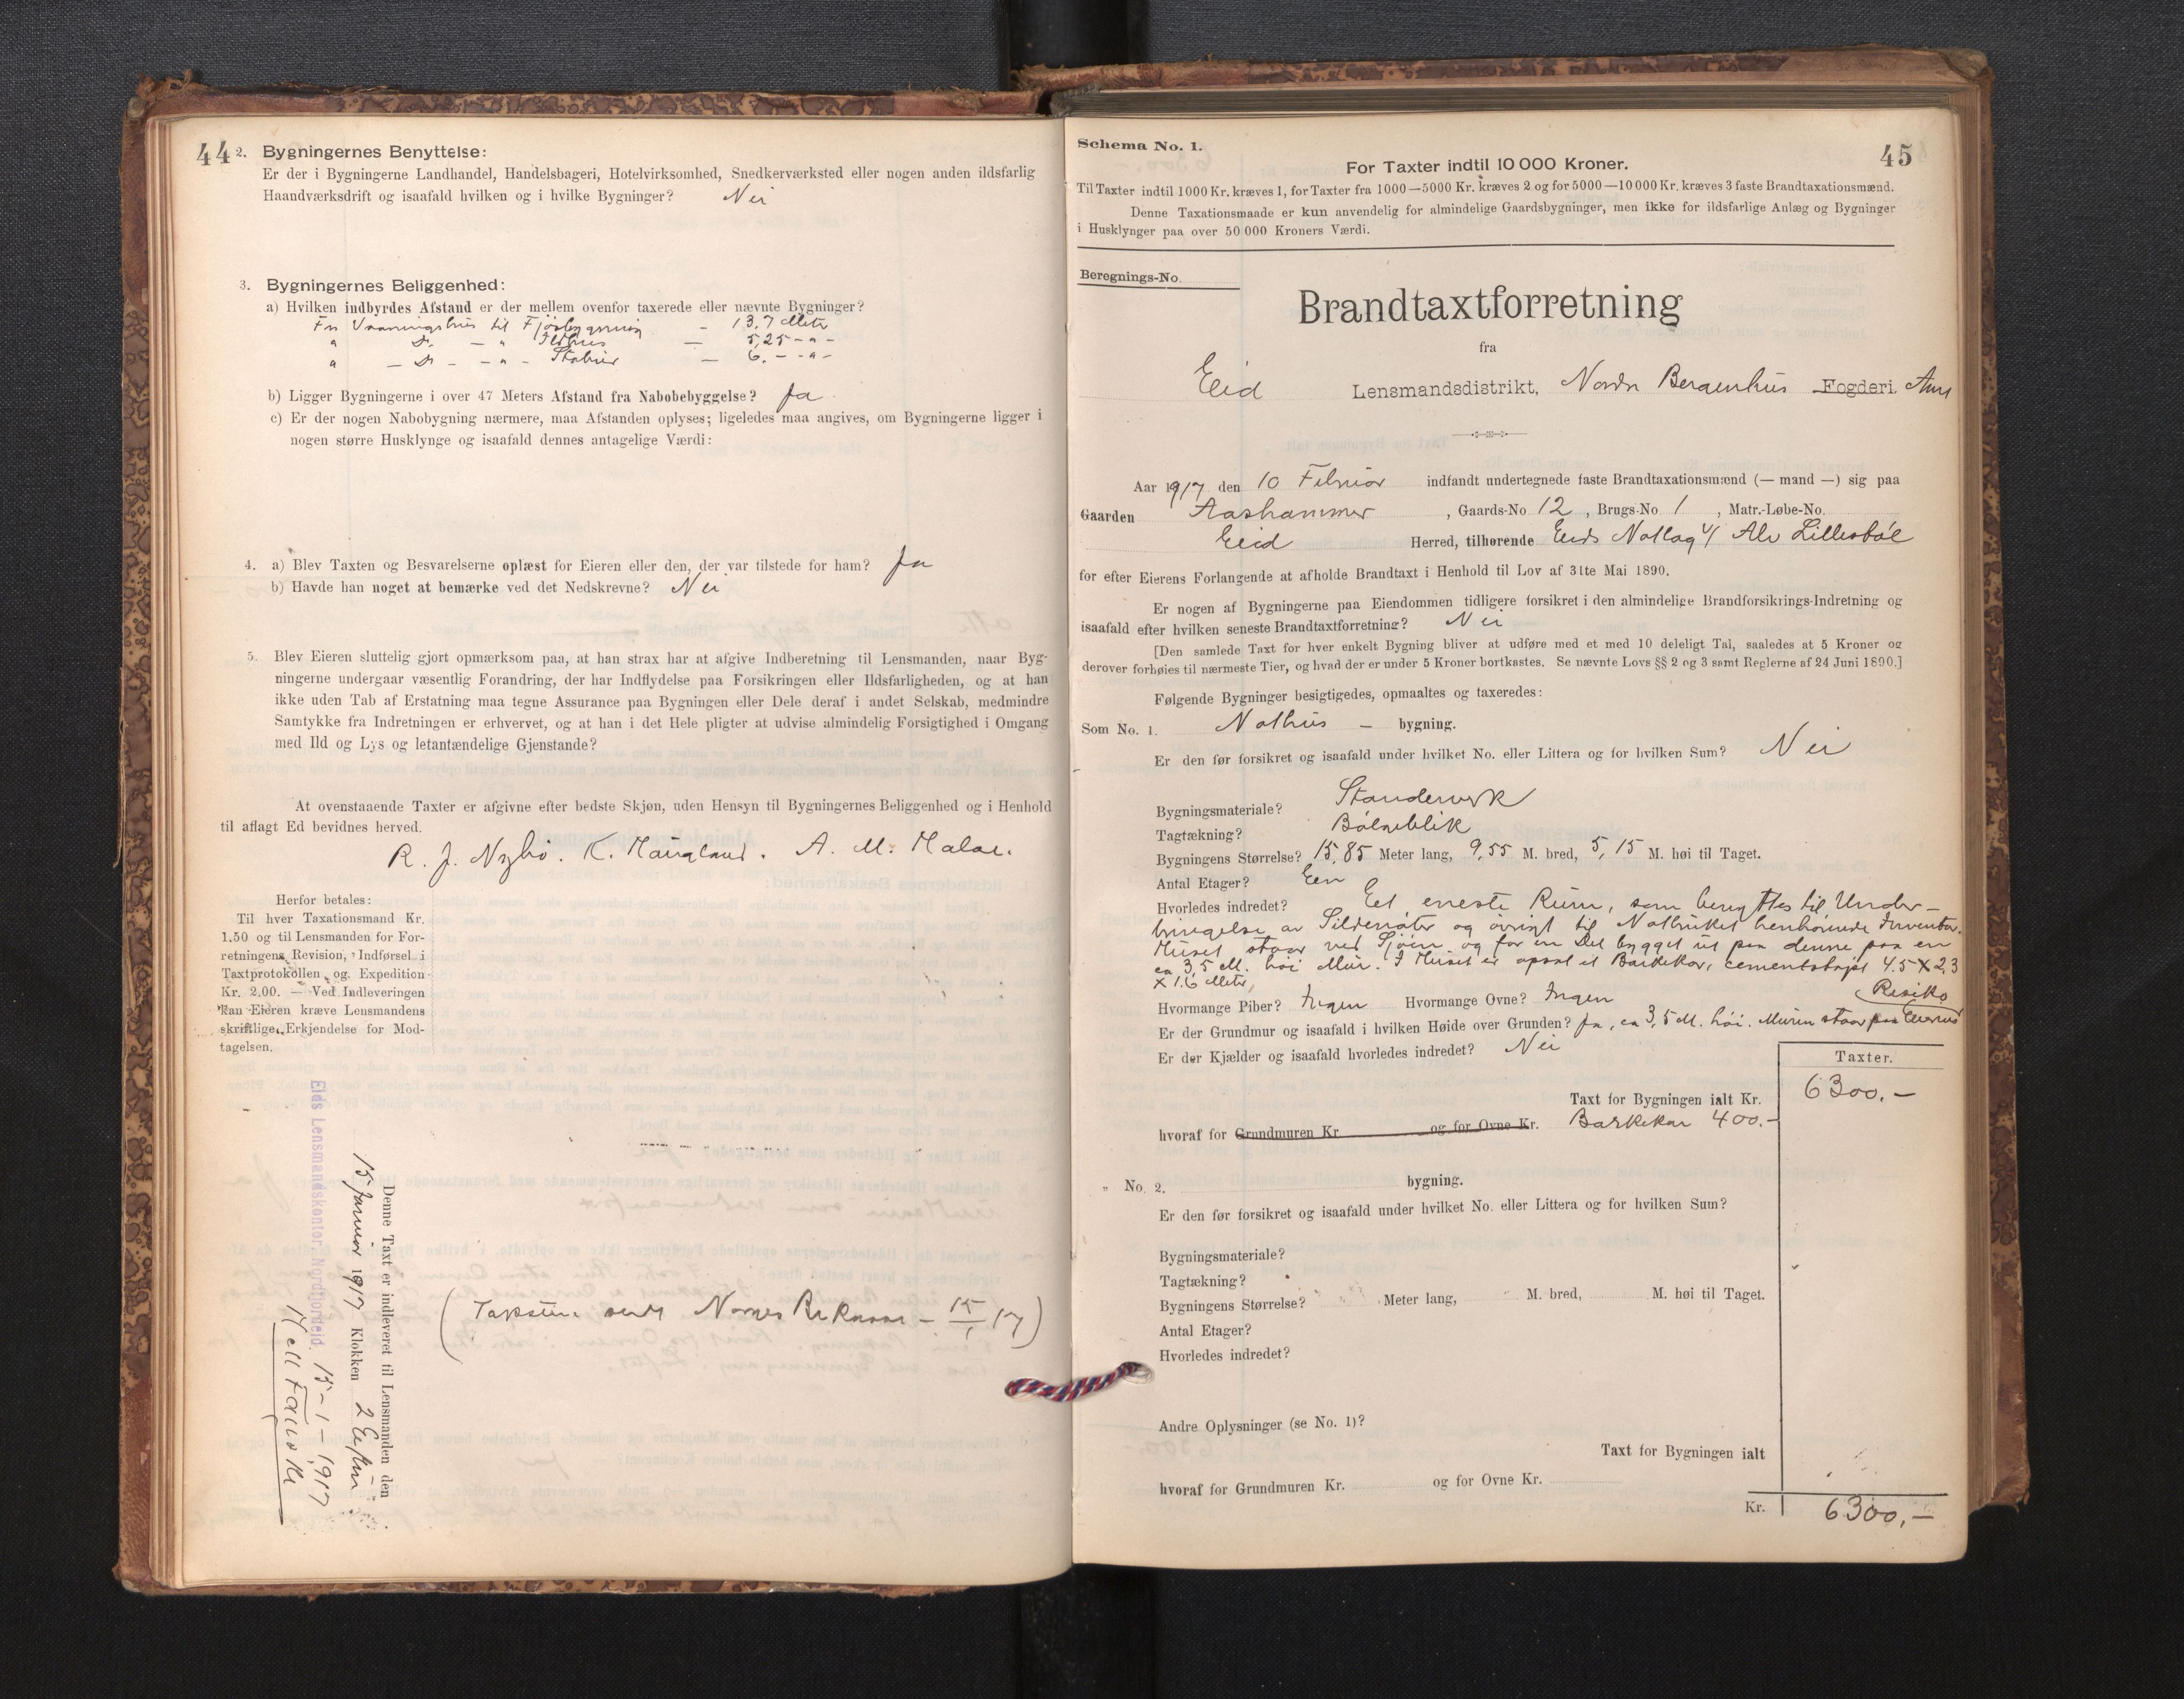 44
2. Bygningernes Benyttelse:
Er der i Bygningerne Landhandel, Handelsbageri, Hotelvirksomhed, Snedkerværksted eller nogen anden ildsfarlig
Haandværksdrift og isaafald hvilken og i hvilke Bygninger? Nei
3. Bygningernes Beliggenhed:
a) Hvilken indbyrdes Afstand er der mellem ovenfor taxerede eller nævnte Bygninger?
Fra Vaaningshus til Fjøsbygning – 13,7 Meter
" D. – " Ildhus – 5,25 – " –
" – D – – " – Stabur – 6. – – " –
b) Ligger Bygningerne i over 47 Meters Afstand fra Nabobebyggelse? Ja
c) Er der nogen Nabobygning nærmere, maa Afstanden oplyses; ligeledes maa angives, om Bygningerne ligger i
nogen større Husklynge og isaafald dennes antagelige Værdi:
4. a) Blev Taxten og Besvarelserne oplæst for Eieren eller den, der var tilstede for ham? Ja
b) Havde han noget at bemærke ved det Nedskrevne? Nei
5. Blev Eieren sluttelig gjort opmærksom paa, at han strax har at afgive Indberetning til Lensmanden, naar Byg-
ningerne undergaar væsentlig Forandring, der har Indflydelse paa Forsikringen eller Ildsfarligheden, og at han
ikke uden Tab af Erstatning maa tegne Assurance paa Bygningen eller Dele deraf i andet Selskab, medmindre
Samtykke fra Indretningen er erhvervet, og at han i det Hele pligter at udvise almindelig Forsigtighed i Omgang
med Ild og Lys og letantændelige Gjenstande?
At ovenstaaende Taxter er afgivne efter bedste Skjøn, uden Hensyn til Bygningernes Beliggenhed og i Henhold
til aflagt Ed bevidnes herved.
R. J. Nybø. K. Haugland. A. M.
Herfor betales:
Til hver Taxationsmand Kr.
1.50 og til Lensmanden for For-
retningens Revision, Indførsel i
Taxtprotokollen og Expedition
Kr. 2,00. — Ved Indleveringen
kan Eieren kræve Lensmandens
skriftlige Erkjendelse for Mod-
tagelsen.
Denne Taxt er indleveret til Lensmanden den
15 Januar 1917 Klokken 2 Eftm.
Eids Lensmandskontor, Nordfjordeid. 15 – 1 – 1917
(Taksten sendt – 15/1 17)
45
Schema No. 1.
For Taxter indtil 10 000 Kroner.
Til Taxter indtil 1000 Kr. kræves 1, for Taxter fra 1000—5000 Kr. kræves 2 og for 5000—10 000 Kr. kræves 3 faste Brandtaxationsmænd.
Denne Taxationsmaade er kun anvendelig for almindelige Gaardsbygninger, men ikke for ildsfarlige Anlæg og Bygninger
i Husklynger paa over 50 000 Kroners Værdi.
Beregnings-No.
Brandtaxtforretning
fra
Eid Lensmandsdistrikt, Nordre Bergenhus Fogderi. Amt
Aar 1917 den 10 Februar indfandt undertegnede faste Brandtaxationsmænd (— mand —) sig paa
Gaarden Aashammer, Gaards-No 12, Brugs-No 1, Matr.-Løbe-No.
Eid Herred, tilhørende Eids Notlag v/ Alv Lillestøl
for efter Eierens Forlangende at afholde Brandtaxt i Henhold til Lov af 31te Mai 1890.
Er nogen af Bygningerne paa Eiendommen tidligere forsikret i den almindelige Brandforsikrings-Indretning og
isaafald efter hvilken seneste Brandtaxtforretning? Nei
[Den samlede Taxt for hver enkelt Bygning bliver at udføre med et med 10 deleligt Tal, saaledes at 5 Kroner og
derover forhøies til nærmeste Tier, og hvad der er under 5 Kroner bortkastes. Se nævnte Lovs §§ 2 og 3 samt Reglerne af 24 Juni 1890.]
Følgende Bygninger besigtigedes, opmaaltes og taxeredes:
Som No. 1. Nothus – bygning.
Er den før forsikret og isaafald under hvilket No. eller Littera og for hvilken Sum? Nei
Bygningsmateriale? Standerverk
Tagtækning? Bølgeblik
Bygningens Størrelse? 15,85 Meter lang, 9,55 M. bred, 5,15 M. høi til Taget.
Antal Etager? Een
Hvorledes indredet? Eet eneste Rum, som benyttes til Under-
bringelse av Sildenøter og øvrigt til Notbruket henhørende Inventar.
Huset staar ved Sjøen og for en Del bygget ut paa denne paa en
ca 3,5 M. høi Mur. I Huset er opsat et Barkekar, cementstøpt 4.5 X 2,3
X 1.6 Meter,
Hvormange Piber? Ingen Hvormange Ovne? Ingen
Er der Grundmur og isaafald i hvilken Høide over Grunden? Ja, ca 3,5 M. høi. Muren staar paa Eierens
Resiko
Er der Kjælder og isaafald hvorledes indredet? Nei
Taxter.
Taxt for Bygningen ialt Kr. 6300.–
hvoraf for Grundmuren Kr. og for Ovne Kr. Barkekar 400.–
„ No. 2. bygning.
Er den før forsikret og isaafald under hvilket No. eller Littera og for hvilken Sum?
Bygningsmateriale?
Tagtækning?
Bygningens Størrelse? Meter lang, M. bred, M. høi til Taget.
Antal Etager?
Hvorledes indredet?
Andre Oplysninger (se No. 1)?
Taxt for Bygningen ialt
hvoraf for Grundmuren Kr. og for Ovne Kr.
Kr. 6300,–